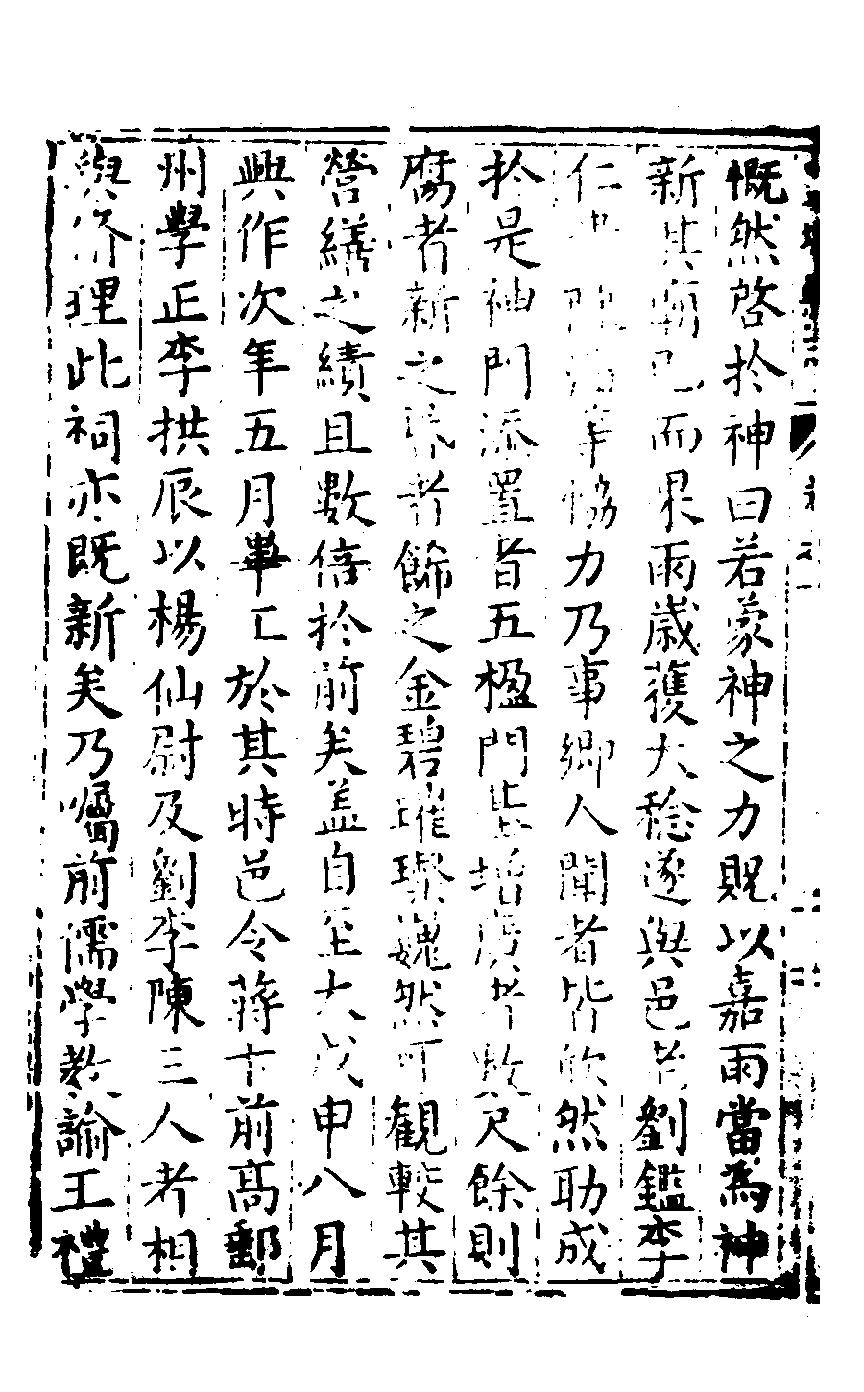 慨然啓於神曰若蒙神之力貺以嘉雨當為神
新其廟已而果雨歲獲大稔遂與邑老劉鑑李
仁 陳 事協力乃事鄉人聞者皆欣然助成
扵是神門添置者五楹門基增廣者數尺餘則
腐者新之 者餙之金碧璀璨巍然可觀較其
營繕之績且數倍扵前矣盖自至大戊申八月
興作次年五月畢工於其時邑令蔣士前髙郵
州學正李拱辰以楊仙尉及劉李陳三人者相
與 理此祠亦既新矣乃囑前儒學教諭王禮